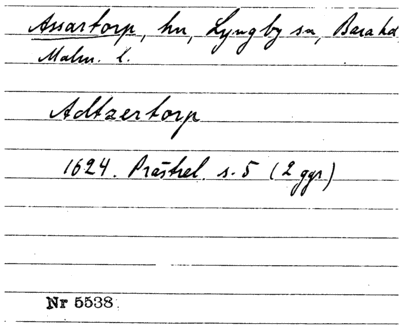 Assartorp, hn, Lyngby sn, Bara hd,
Malm. l.
Adtzertorp
1624. Prästrel. s. 5 (2 ggr)
Nr 5538